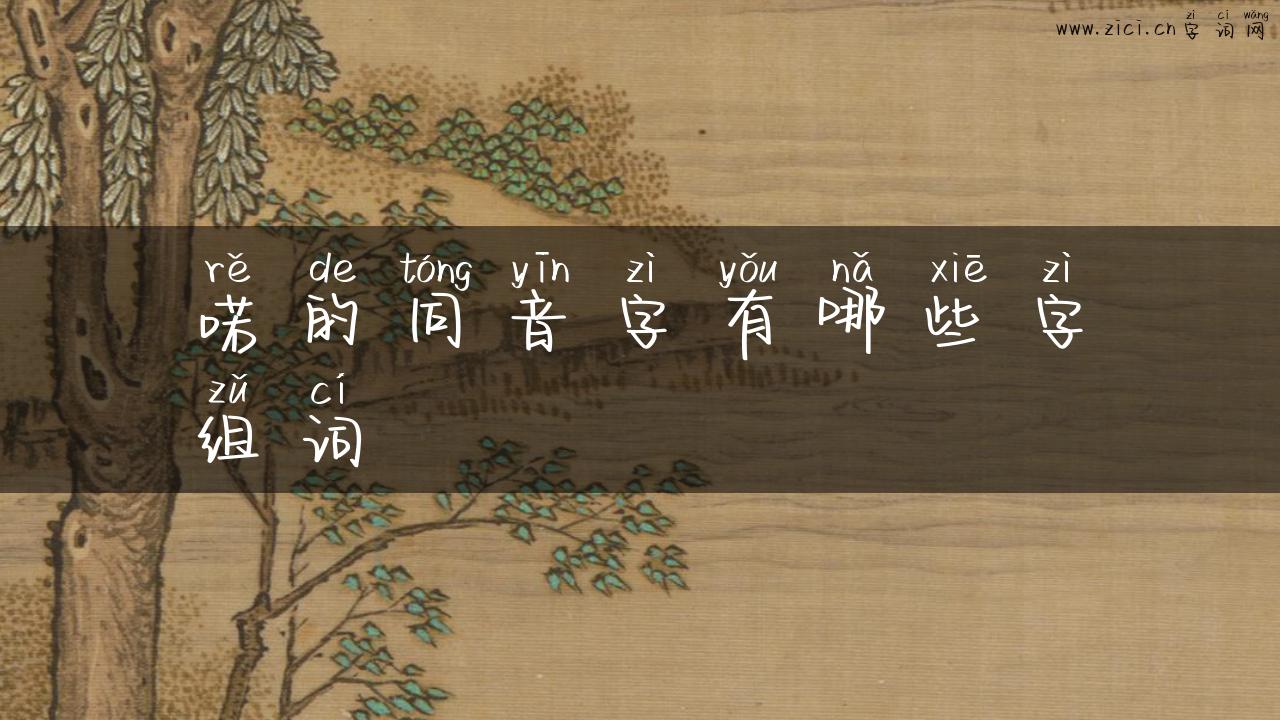 zì cí wǎng
www.zici.cn 字词网
rě de tóng yīn zì yǒu nǎ xiē zì
喏的同音字有哪些字
zǔ cí
组词